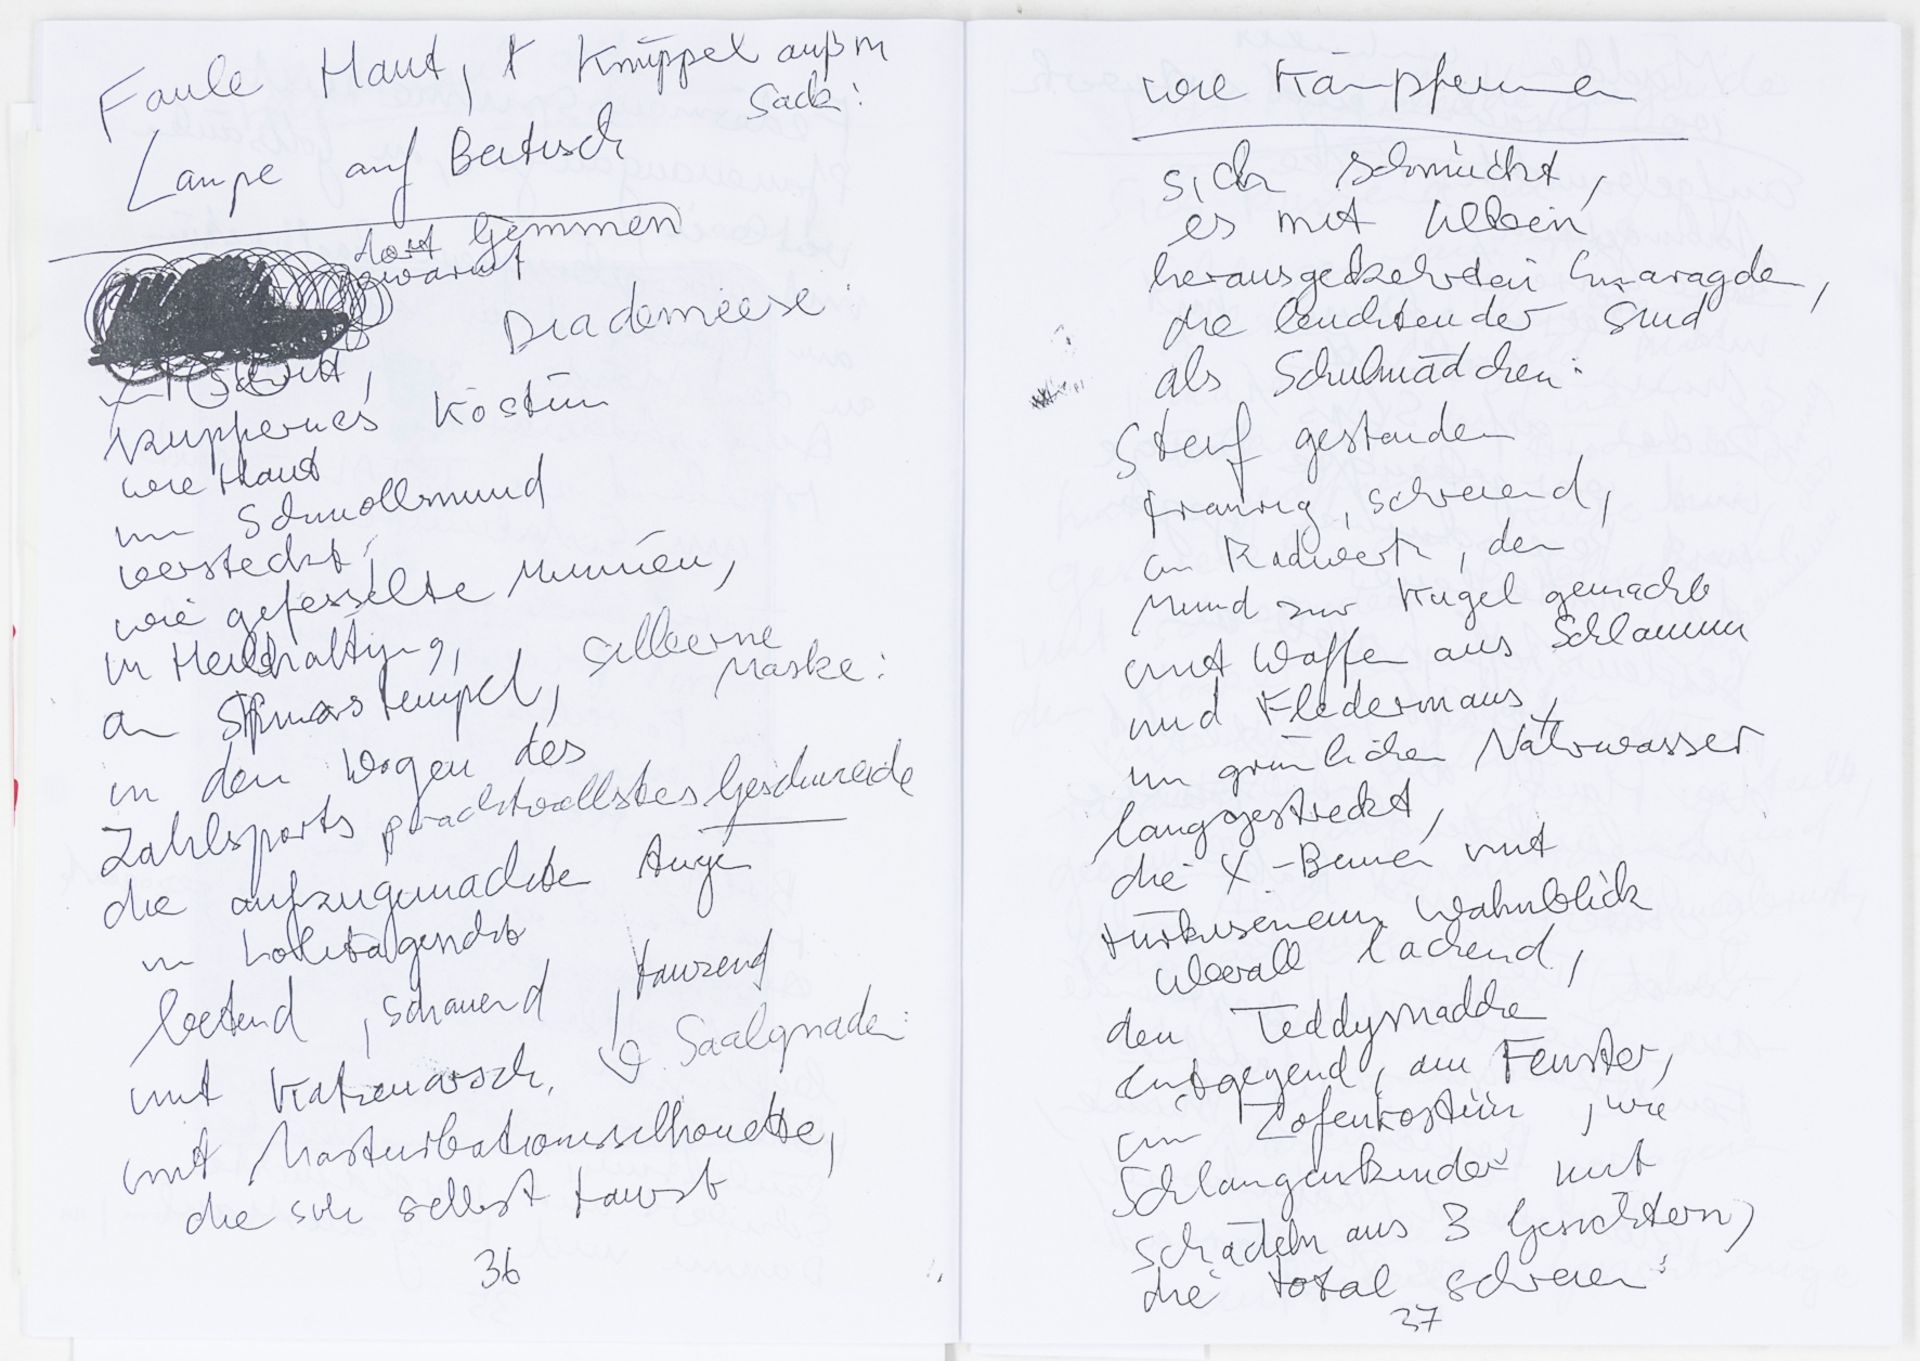 Faule Haut, + Knüppel aufm
Sack:
Lampe auf Bertisch
dort Gemmen
gewärmt
Diademiese:
kuppernes Kostüm
wie Haut
im Schmollmund
versteckt,
wie gefesselte Mumien,
in Haltung,
an tempel, silberne
Maske:
in den Wogen des
Zahlsports prachtvollstes Geschmeide
die aufzugemachte Augen
in
betend, schauend, tausend
Saalgnade:
mit Katzenarsch,
mit Masturbationssilhouette,
die sich selbst
36
wie Kämpferinnen
sich schmückt,
es mit Üblein
herausgekehrten Smaragden,
die leuchtender sind
als Schulmädchen:
Steif gestanden
traurig, schreiend,
an Radwerk, den
Mund zur Kugel gemacht
mit Waffen aus Schlamm
und Fledermaus,
im grünlichen Nährwasser
langgestreckt,
die X-Beine mit
türkisenem Wahnblick
überall lachend,
den Teddysmädchen
entgegend, am Fenster,
im Zofenkostüm, wie
Schlangenkinder mit
Schädeln aus 3 Gesichtern,
die total schreien:
37